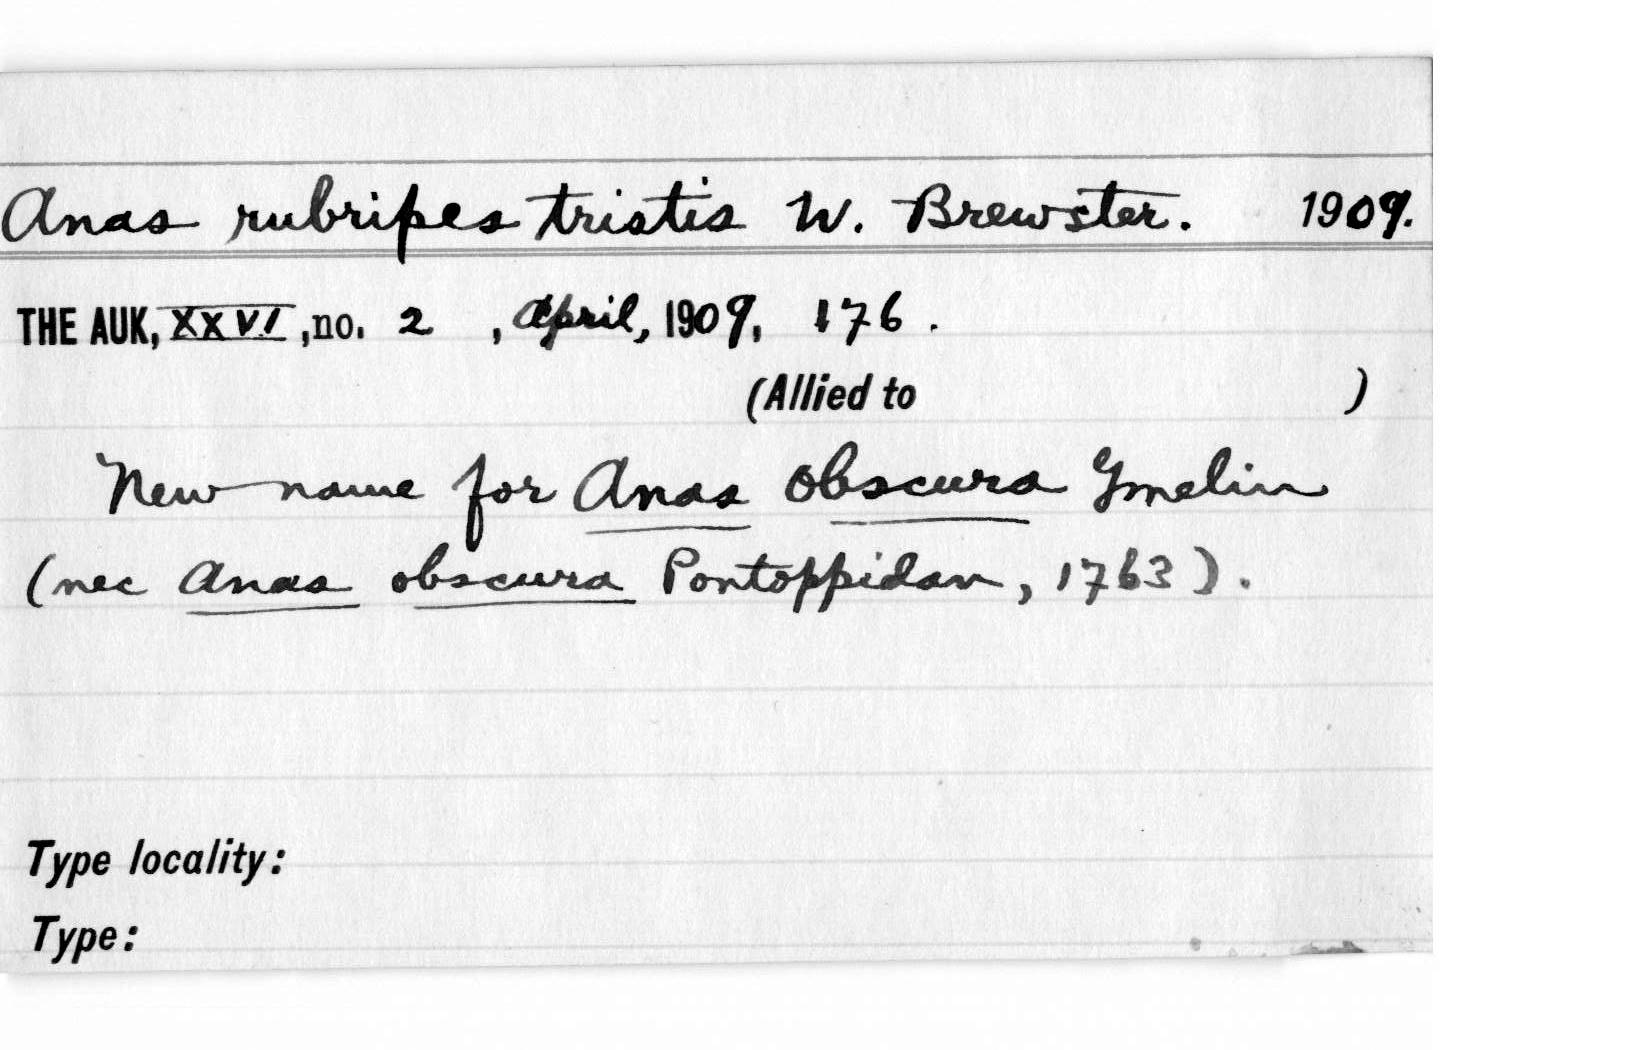 Anas rubripes tristis W. Brewster. 1909.
THE AUK, XXVI, no. 2, April, 1909, 176.
(Allied to )
New name for Anas obscura Gmelin
(nec Anas obscura Pontoppidan, 1763).
Type locality:
Type: